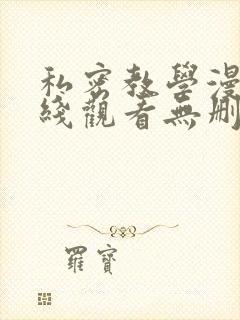 私密教學漫
綫觀看無刪
羅寶